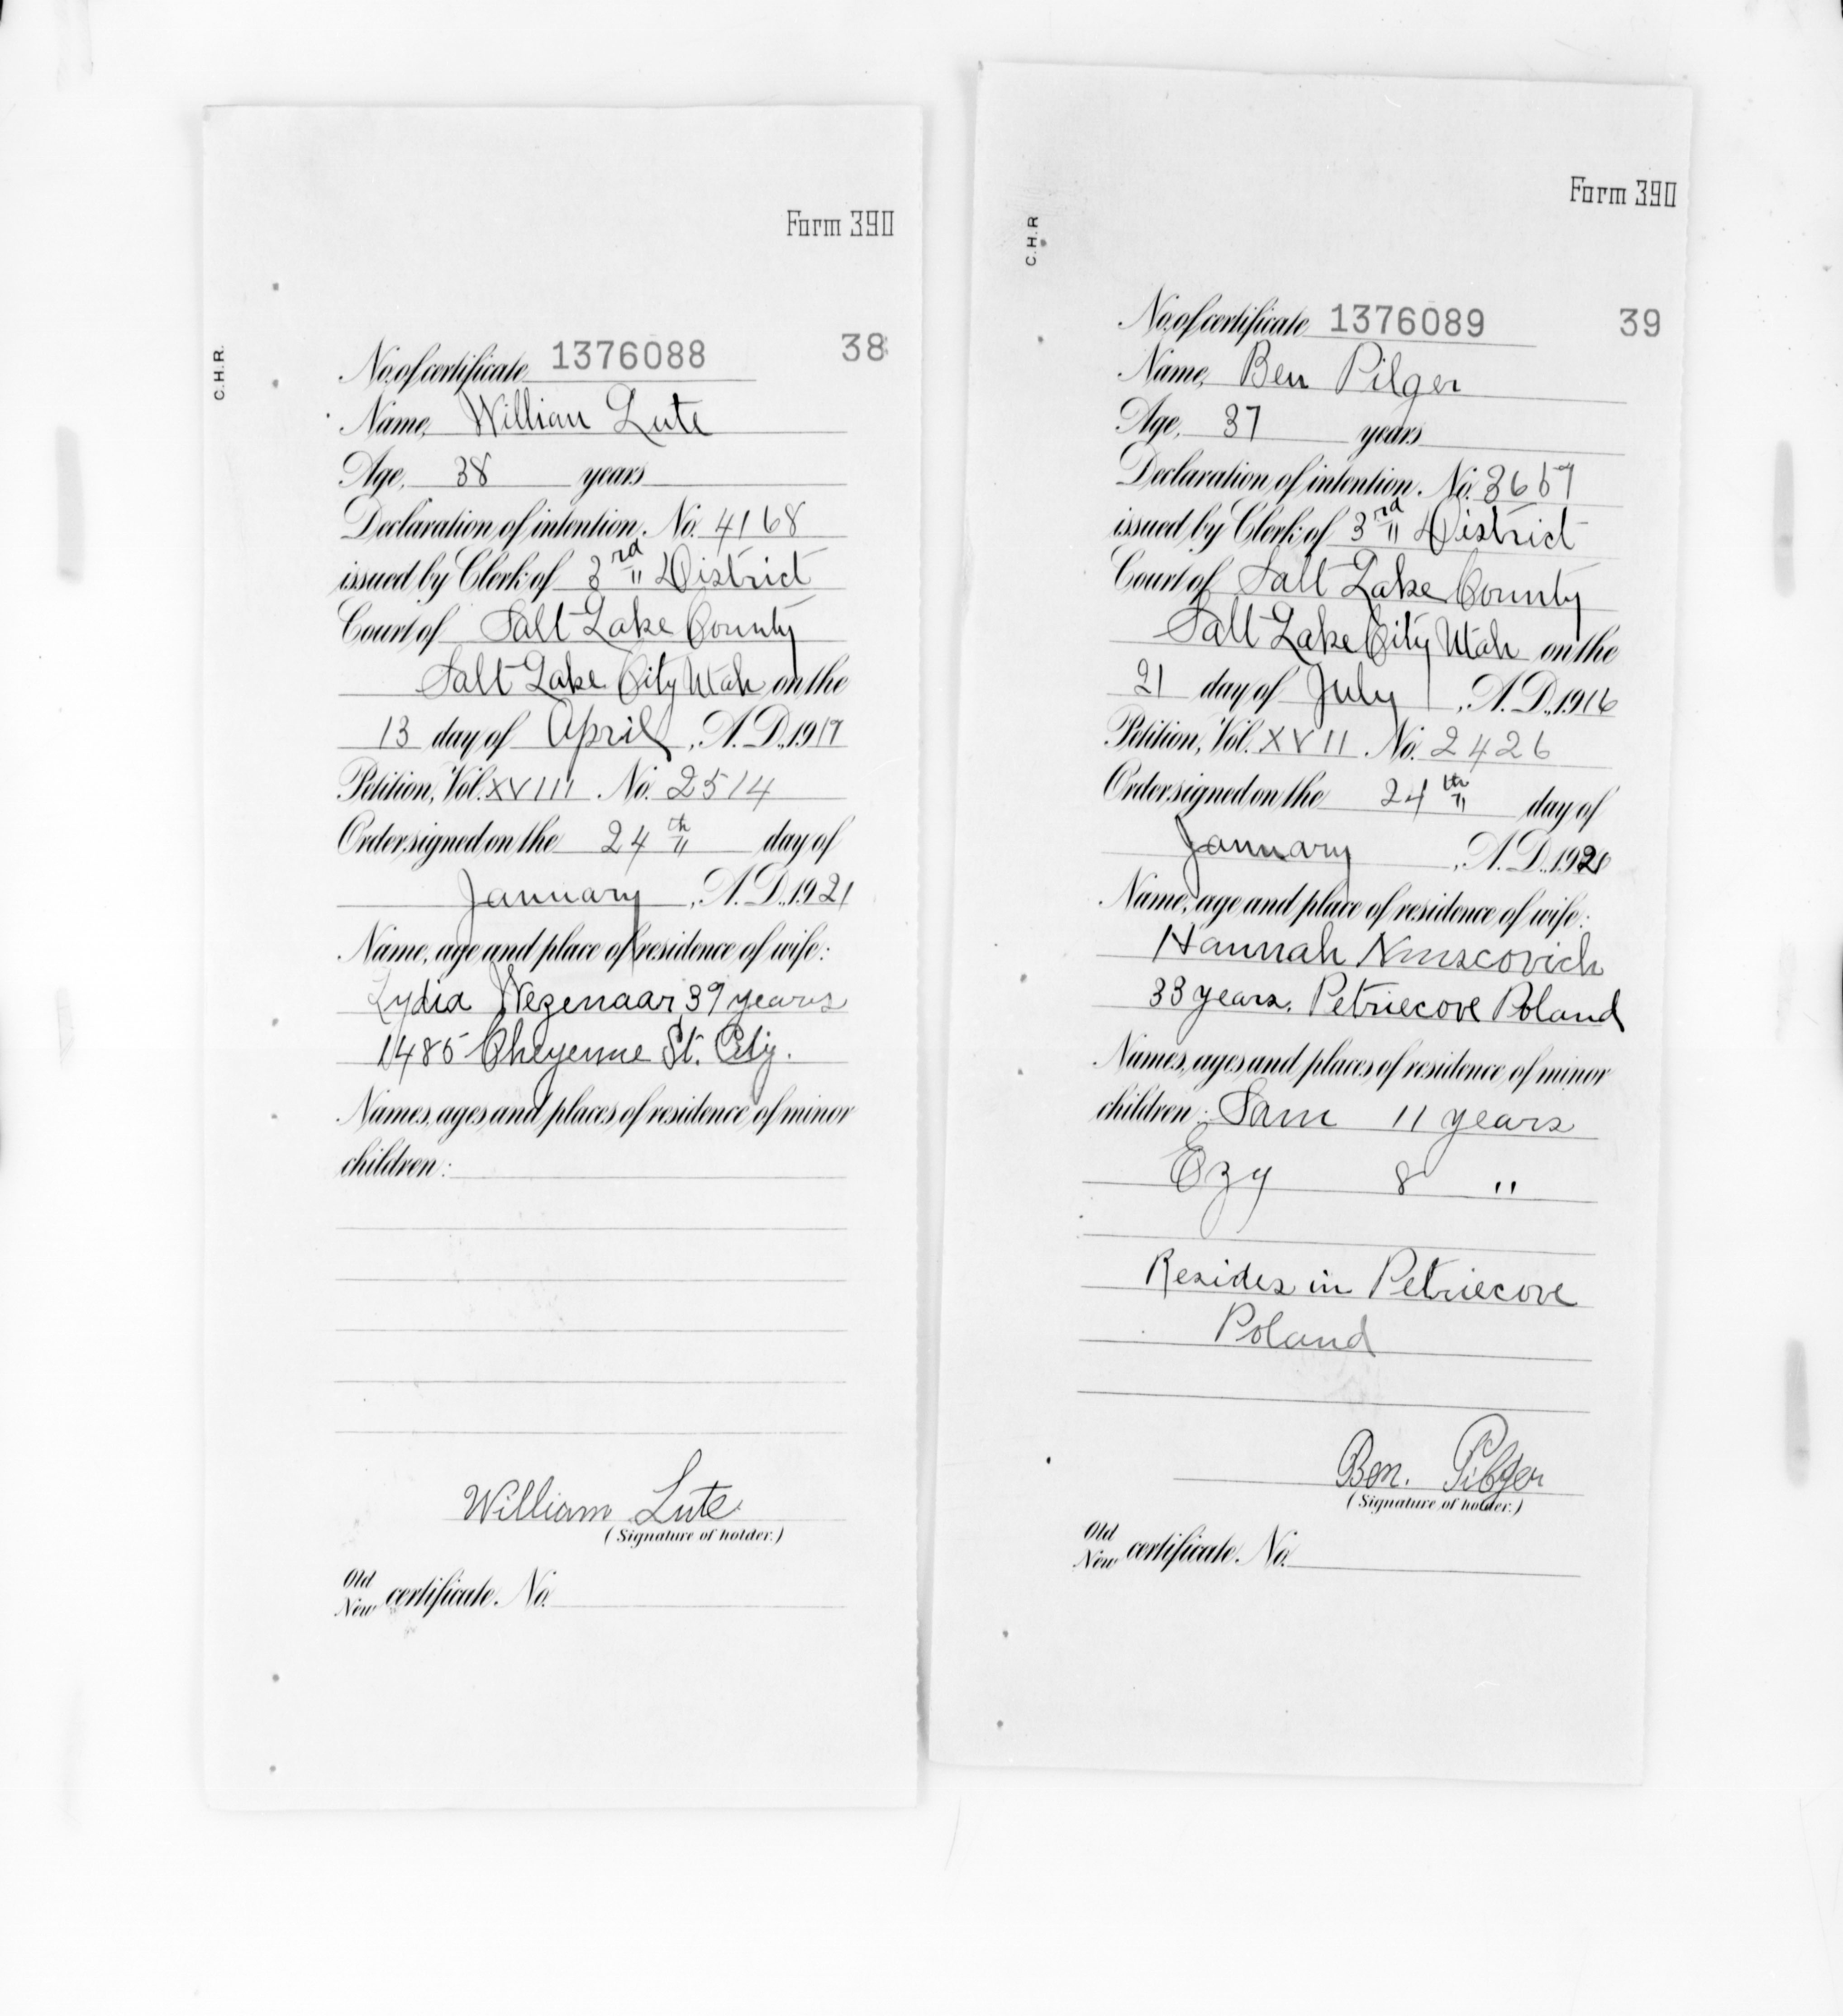 Form 390
C.H.R.
No. of certificate 1376088 38
Name, William Lute
Age, 38 years
Declaration of intention. No. 4168
issued by Clerk of 3rd District
Court of Salt Lake County
Salt Lake City Utah on the
13 day of April, A.D. 1917
Petition, Vol. XVIII No. 2514
Order signed on the 24th day of
January, A.D. 1921
Name, age and place of residence of wife:
Lydia Wezenaar 39 years
1485 Cheyenne St. City.
Names, ages and places of residence of minor
children:
William Lute
(Signature of holder.)
Old
New certificate. No.
Form 390
C.H.R
No. of certificate 1376089 39
Name, Ben Pilger
Age, 37 years
Declaration of intention. No.
issued by Clerk of 3rd District
Court of Salt Lake County
Salt Lake City Utah on the
21 day of July, A.D. 1916
Petition, Vol. XVII No. 2426
Order signed on the 24th day of
January, A.D. 192
Name, age and place of residence of wife:
Hannah
33 years. Petriecove Poland
Names, ages and places of residence of minor
children: Sam 11 years
Ezy 8 "
Resides in Petriecove
Poland
Ben. Pilger
(Signature of holder.)
Old
New certificate. No.